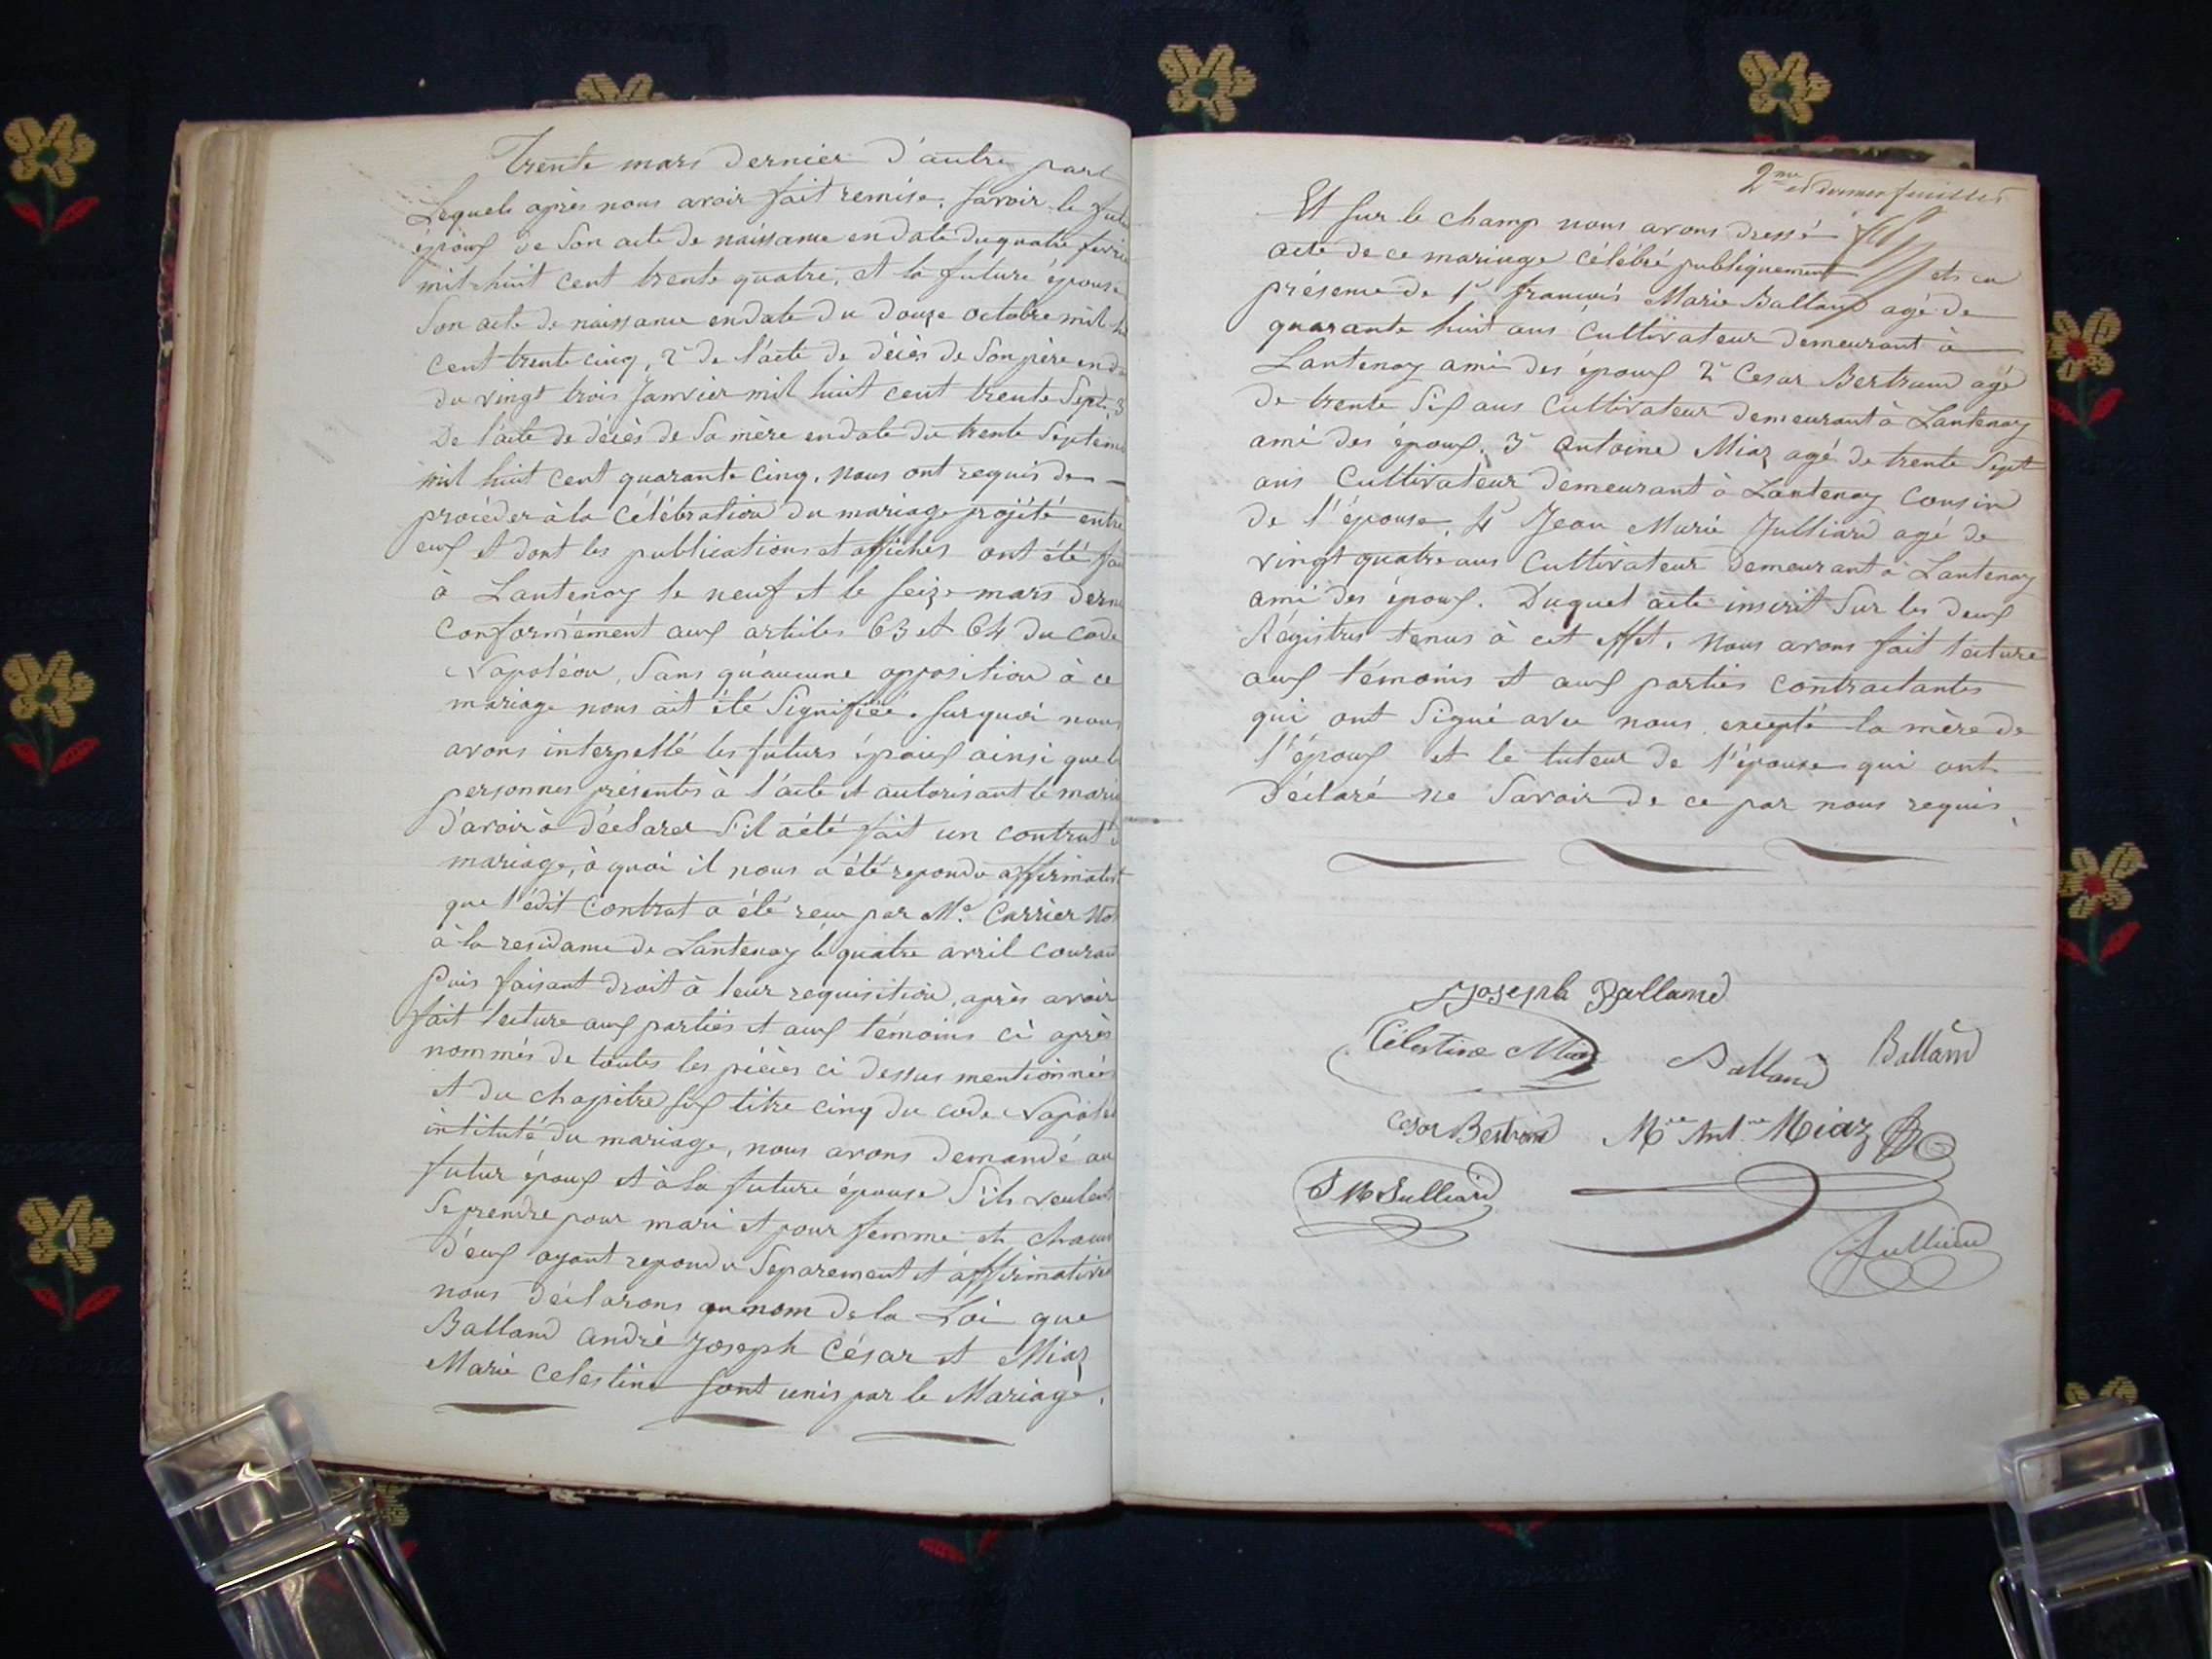 Trente mars dernier d'autre part
Lequels après nous avoir fait remise, savoir le futu
époux de Son acte de naissance en date du quatre fevrie
mil huit cent trente quatre, et la future épouse
Son acte de naissance en date du douze octobre mil hu
cent trente cinq, 2° de l'acte de décès de Son père en da
du vingt trois Janvier mil huit cent trente Sept, 3
De l'acte de décès de Sa mère en date du trente Septemb
mil huit cent quarante cinq, nous ont requis de
procéder à la Célébration du mariage projété entre
eux et dont les publications et affiches ont été fai
à Lantenay le neuf et le seize mars dern
Conformément aux articles 63 et 64 du Code
Napoléon, Sans qu'aucune opposition à ce
mariage nous ait été Signifiée. Sur quoi nous
avons interpellé les futurs époux ainsi que le
personnes présentes à l'acte et autorisant le maria
d'avoir à déclarer S'il a été fait un contrat d
mariage, à quoi il nous a été repondu affirmativt
que l'édit Contrat a été reçu par Me Carrier Not
à la residance de Lantenay le quatre avril Couran
Puis faisant droit à leur requisition, après avoir
fait lecture aux parties et aux témoins ci après
nommés de toutes les pièces ci dessus mentionnée
et du chapitre six titre cinq du code Napolé
intitulé du mariage, nous avons demandé au
futur époux et à la future épouse S'ils veulent
Se prendre pour mari et pour femme et chacun
d'eux ayant repondu Séparement et affirmative
nous déclarons au nom de la Loi que
Balland andré Joseph César et Miaz
Marie Celestine Sont unis par le Mariage.
2me et dernier feuillet
Et sur le champ nous avons dressé
acte de ce mariage célébré publiquement et en
présence de 1° francois Marie Balland agé de
quarante huit ans Cultivateur demeurant à
Lantenay ami des époux 2° Cesar Bertrand agé
de trente Six ans Cultivateur demeurant à Lantenay
ami des époux. 3° antoine Miaz agé de trente Sept
ans Cultivateur demeurant à Lantenay Cousin
de l'épouse, 4° Jean Marie Julliard agé de
vingt quatre ans Cultivateur demeurant à Lantenay
ami des époux. Duquel acte inscrit Sur les deux
Régistres tenus à cet effet. Nous avons fait lecture
aux témoins et aux parties Contractantes
qui ont Signé avec nous, excepté la mère de
l'époux et le tuteur de l'épouse qui ont
Déclaré ne Savoir de ce par nous requis.
Joseph Balland
Célestine Miaz Balland Balland
Cesar Bertrand Mie Antne Miaz
J M Julliard
Jullierd